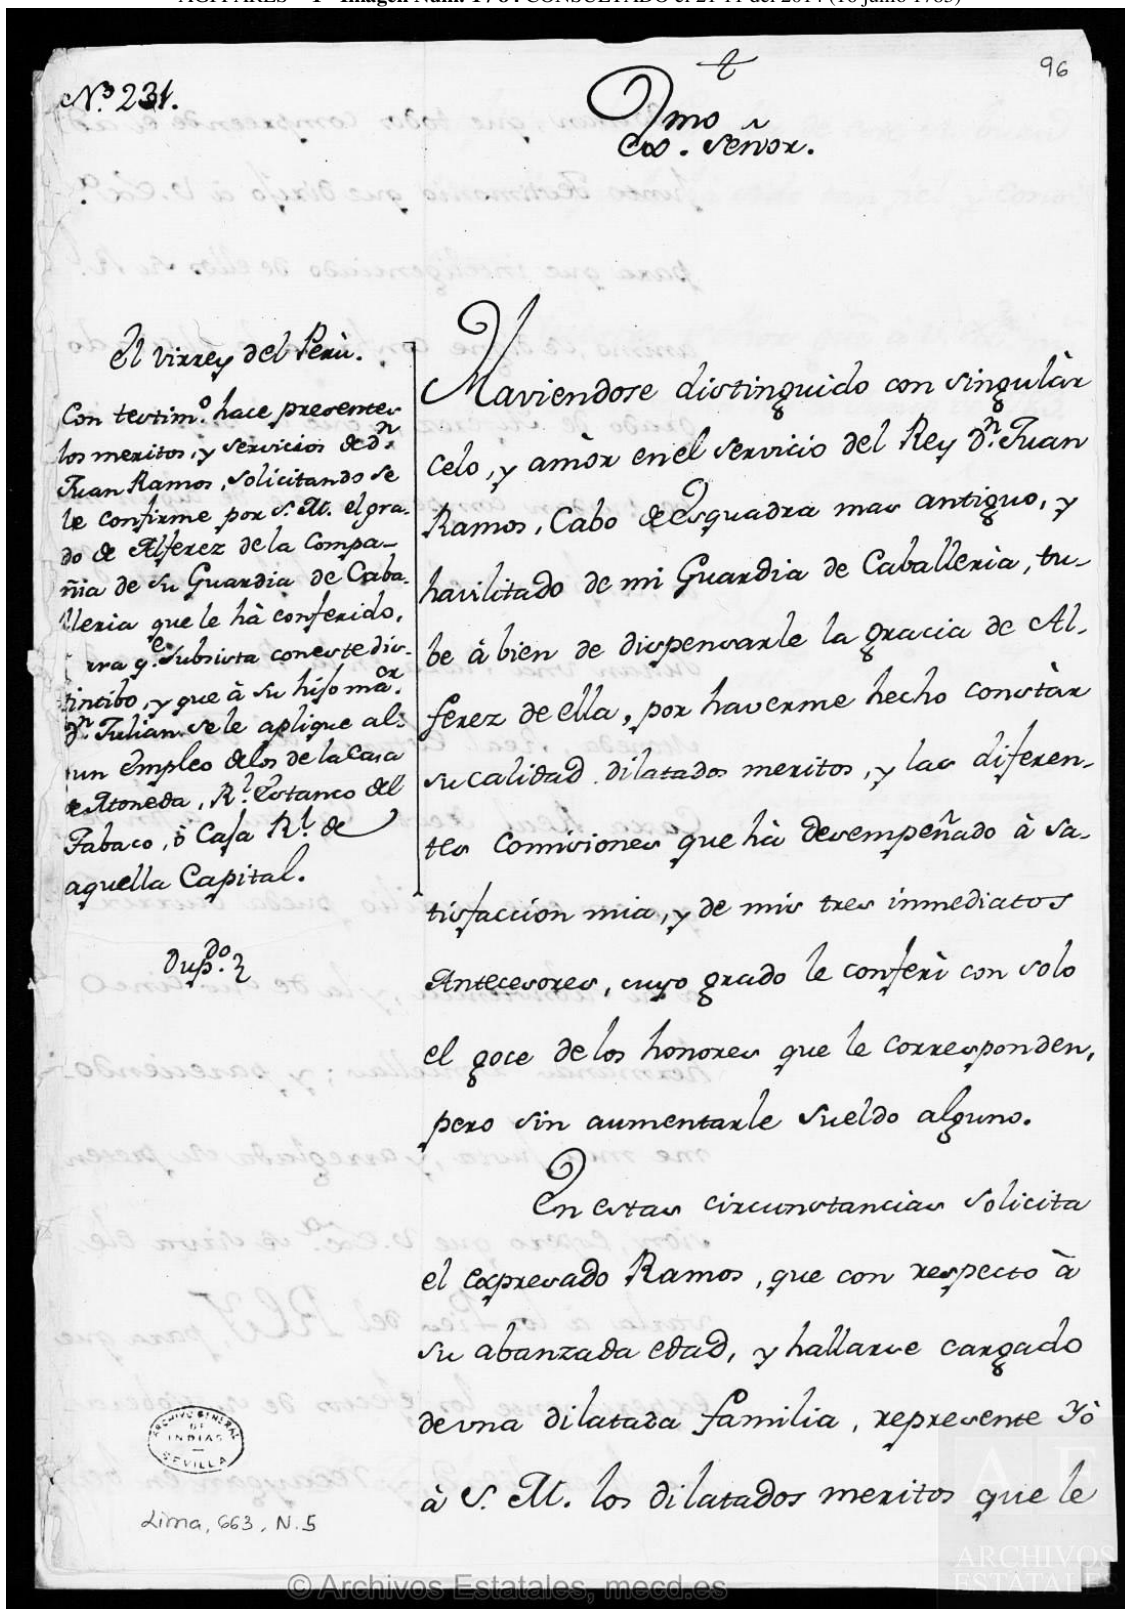 AGI PARES - 1 - Imagen Núm: 1 / 64 CONSULTADO el 21 11 del 2014 (16 junio 1783)
96
N.º 231.
Exmo. Señor.
El Virrey del Perù.
Con testim.º hace presentes
los meritos, y servicios de d.n
Juan Ramos, solicitando se
le confirme por S. M. el gra-
do de Alferez de la Compa-
ñia de su Guardia de Caba-
lleria que le hà conferido,
q.e subsista con este dis-
tintibo, y que à su hijo ma.or
D.n Julian se le aplique al-
un empleo de los de la Casa
de Moneda, R.l Estanco del
Tabaco, ò Caja R.l de
aquella Capital.
Dup.do
Haviendose distinguido con singulàr
celo, y amòr en el servicio del Rey D.n Juan
Ramos, Cabo de Esquadra mas antiguo, y
havilitado de mi Guardia de Caballeria, tu-
be à bien de dispensarle la gracia de Al-
ferez de ella, por haverme hecho constàr
su calidad dilatados meritos, y las diferen-
tes Comisiones que hà desempeñado à sa-
tisfaccion mia, y de mis tres inmediatos
Antecesores, cuyo grado le conferì con solo
el goce de los honores que le corresponden,
pero sin aumentarle sueldo alguno.
En estas circunstancias solicita
el expresado Ramos, que con respecto à
su abanzada edad, y hallarse cargado
de una dilatada familia, represente Yò
à S. M. los dilatados meritos que le
ARCHIVO GENERAL
DE
INDIAS
SEVILLA
Lima, 663, N.5
A E
ARCHIVOS
ESTATALES
© Archivos Estatales, mecd.es